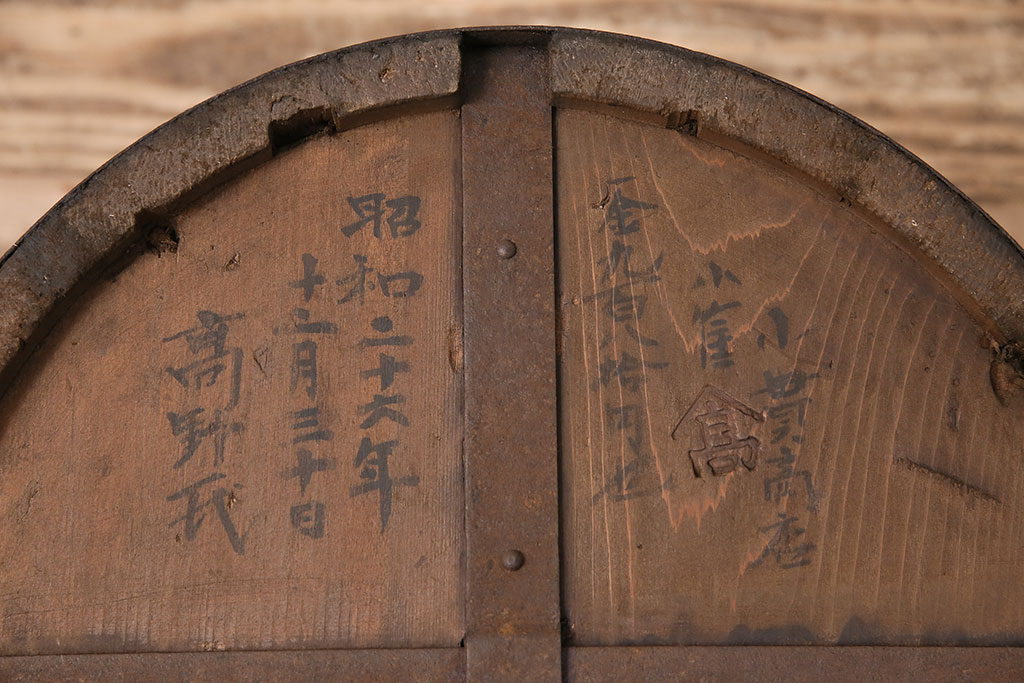 小貫商店
小雀
髙
金九百八拾円也
昭和二十六年
十二月三十日
高野氏